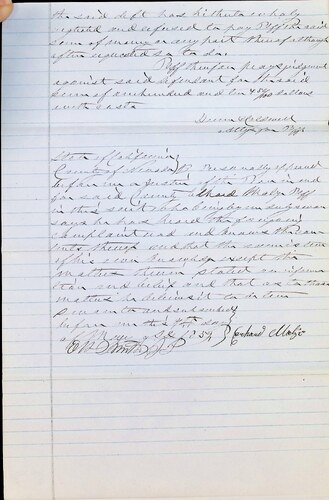 the said deft has hitherto wholy
neglected and refused to pay Plff the said
sum of money or any part thereof although
often requested so to do.
Plff therefore prays judgment
against said defendant for the said
sum of one hundred and ten & 50/100 dollars
with costs
& Caldwell
Attys for Plff
State of California
County of Nevada } SS Personally appeared
before me a Justice of the Peace in and
for said County Plff
in this suit who being duly sworn
says he has heard the foregoing
complaint read and knows the con
tents thereof and that the same is true
of his own knowledge except the
matters therein stated on informa
tion and belief and that as to those
matters he believes it to be true
Sworn to and subscribed
before me this day
of 1854
J.P.